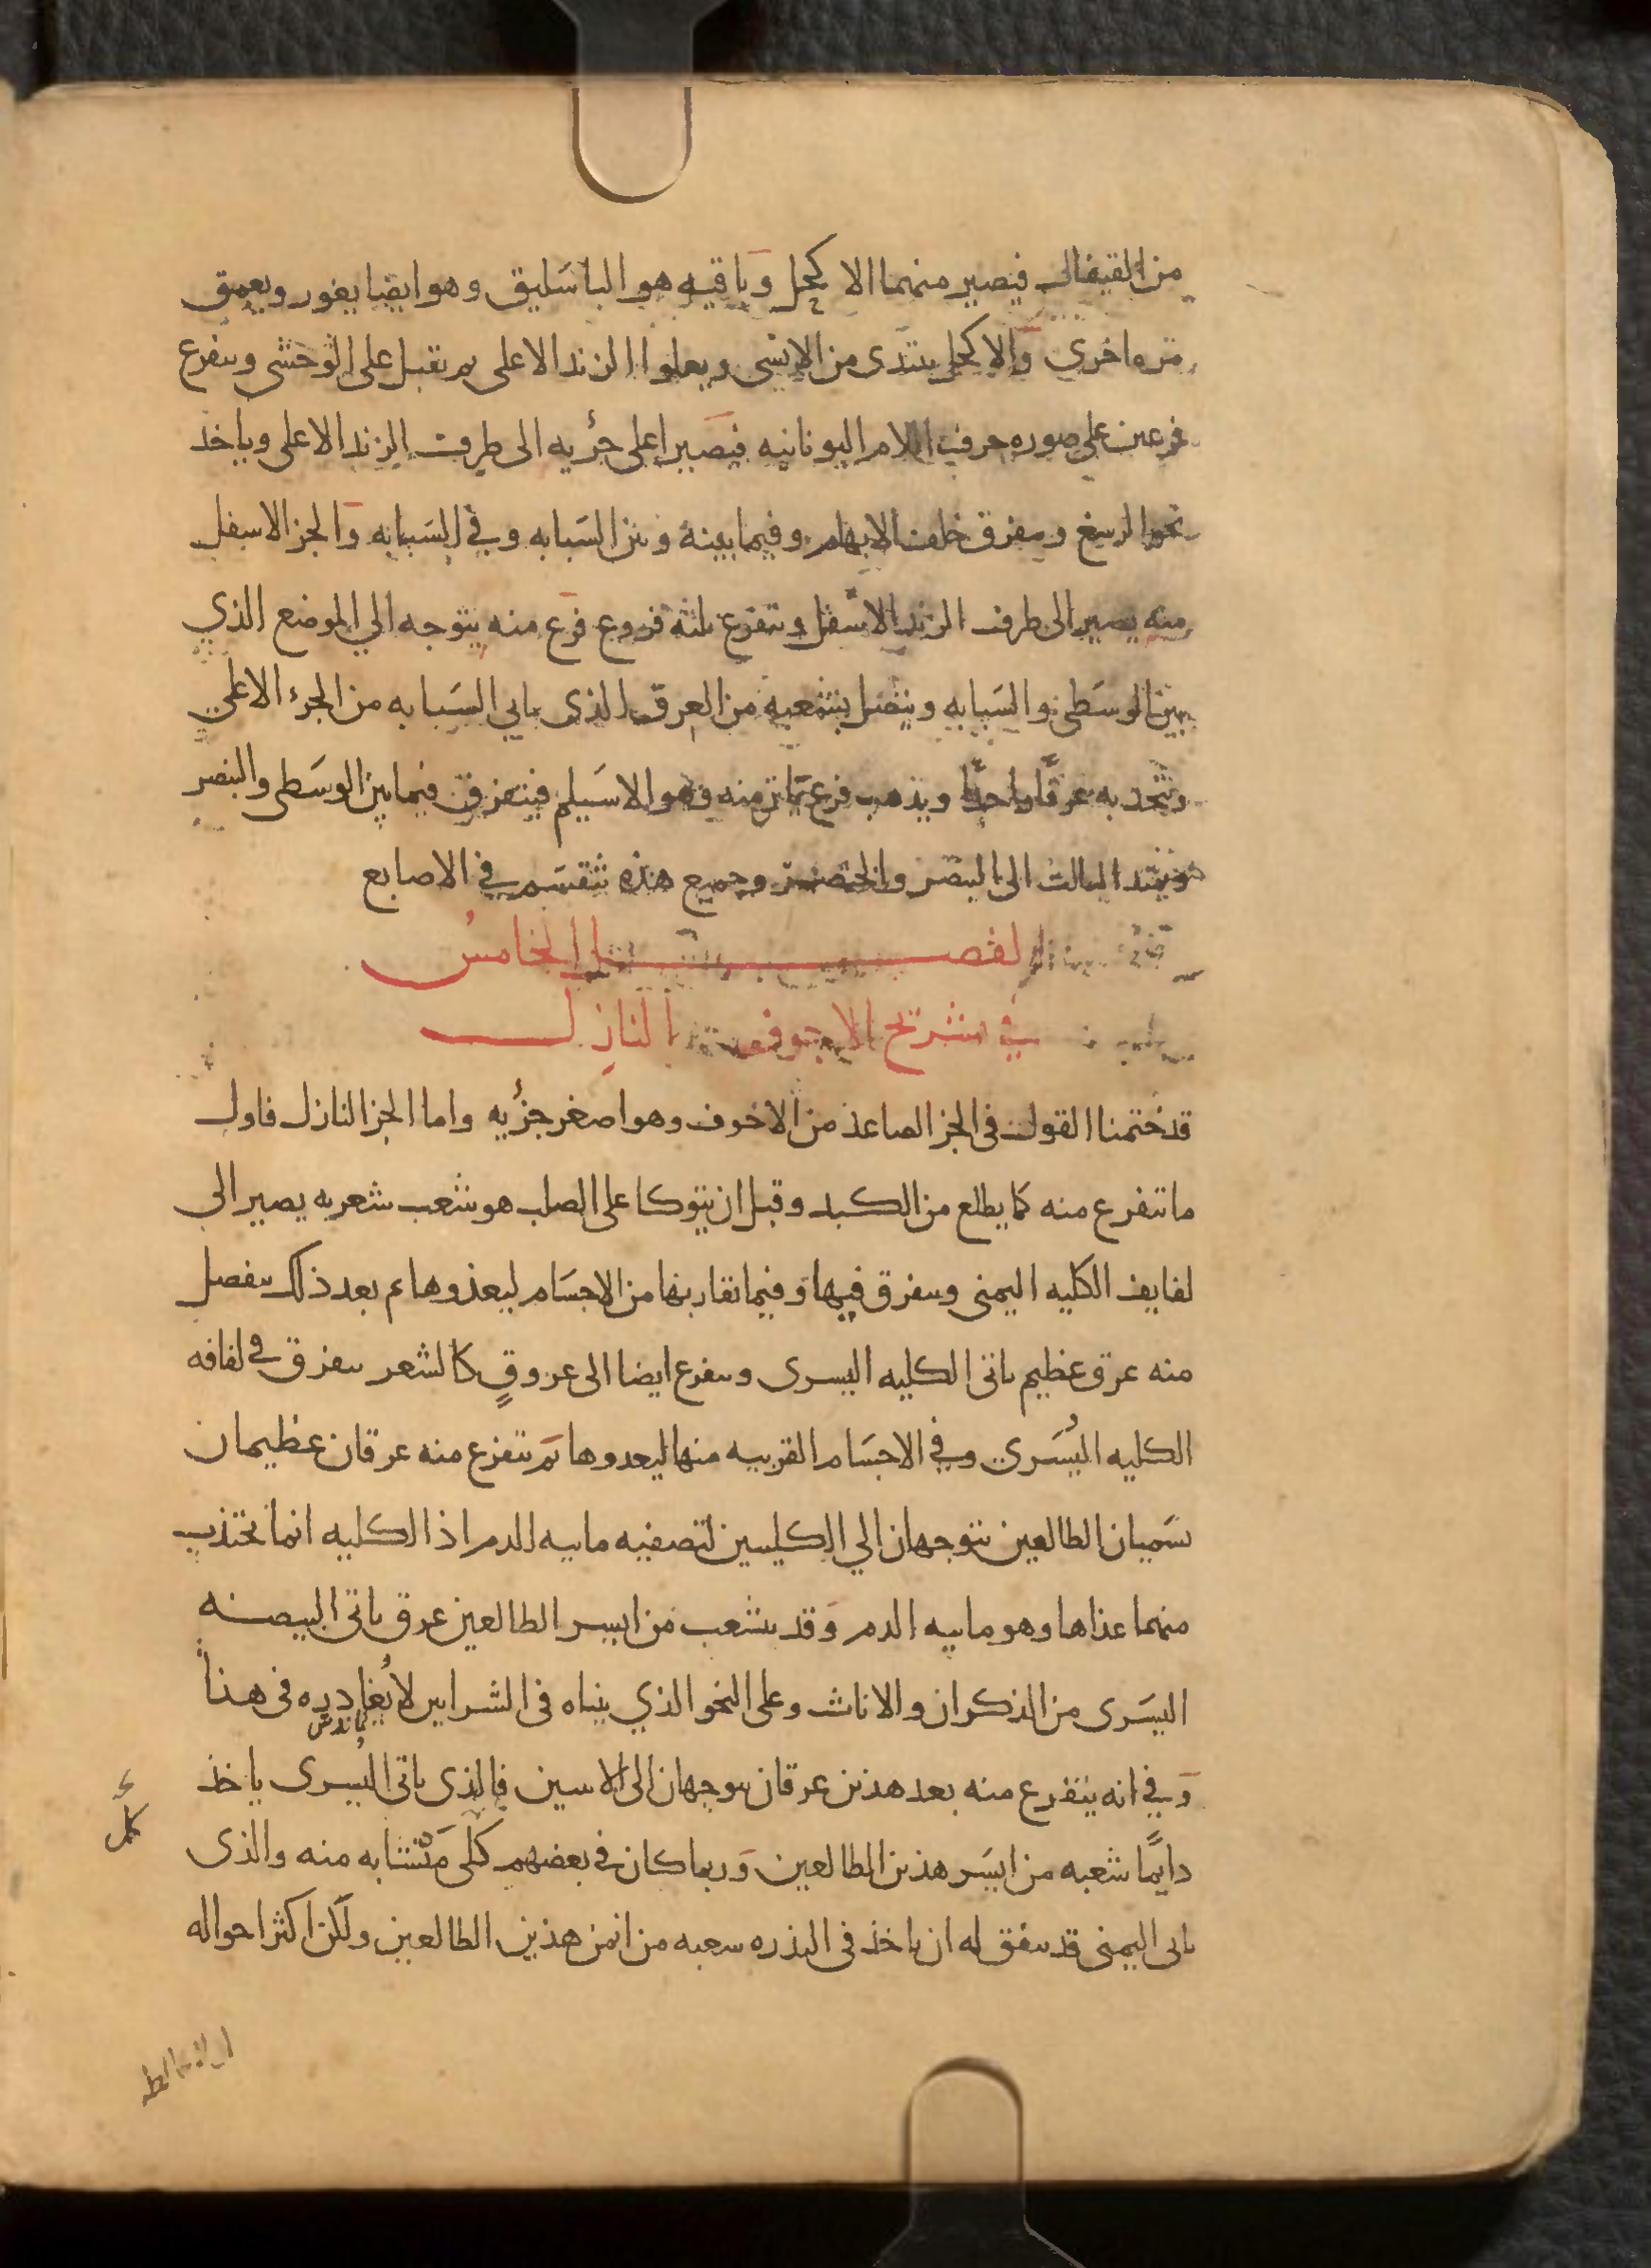 من القيفال فيصير منهما الاكحل وباقيه هو الباسَليق وهو ايضا يغور ويعمق
مره اخري والاكحل يبتدى من الانسى ويعلوا الزند الاعلى ثم يقبل على الوحشى ويتفرع
فرعين على صوره حرف اللام اليونانيه فيصير اعلى جزُيه الى طرف الزند الاعلى وياخذ
نحو الرسغ ويتفرق خلف الابهام وفيما بينه وبين السَبابه وفي السَبابه والجز الاسفل
منه يصير الى طرف الزند الاسفل ويتفرع ثلثه فروع فرع منه يتوجه الي الموضع الذي
بين الوسَطى والسَبابه ويتصل بشعبه من العرق الذى ياتى السَبابه من الجزء الاعلي
ويتحد به عرقًا واحدًا ويذهب فرع ثانى منه وهو الاسَيلم فيتفرق فيما بين الوسَطى والبنصر
ويمتد الثالث الى البنصر والخنصر وجميع هذه تتقسَم في الاصابع
الفصل الخامسُ
في تشريح الاجوف النازل
قد ختمنا القول فى الجز الصاعد من الاجوف وهو اصغر جزُيه واما الجز النازل فاول
ما يتفرع منه كما يطلع من الكبد وقبل ان يتوكا على الصلب هو شعب شعريه يصير الى
لفايف الكليه اليمنى ويتفرق فيها وفيما يقاربها من الاجسَام ليغذوها ثم بعد ذلك ينفصل
منه عرق عظيم ياتى الكليه اليسرى ويتفرع ايضا الى عروقٍ كالشعر يتفرق في لفافه
الكليه اليُسَري وفي الاجسَام القريبه منها ليغدوها ثم يتفرع منه عرقان عظيمان
يسَميان الطالعين يتوجهان الي الكليتين لتصفيه ماييه الدم اذ الكليه انما تجتذب
منهما غذاها وهو ماييه الدم وقد يتشعب من ايسر الطالعين عرق ياتى البيصنه
اليسَرى من الذكران والاناث وعلى النحو الذي بيناه فى الشرايين لا يُغادره فى هذا
وفي انه يتفرع منه بعد هذين عرقان يتوجهان الى الانثيين فالذى ياتى اليُسرى ياخذ
دايمًا شعبه من ايسَر هذين الطالعين وربما كان في بعضهم كلى مَتشابه منه والذى
ياتى اليمنى قد يتفق له ان ياخذ فى الندره شعبه من ايمن هذين الطالعين ولكن اكثر احواله